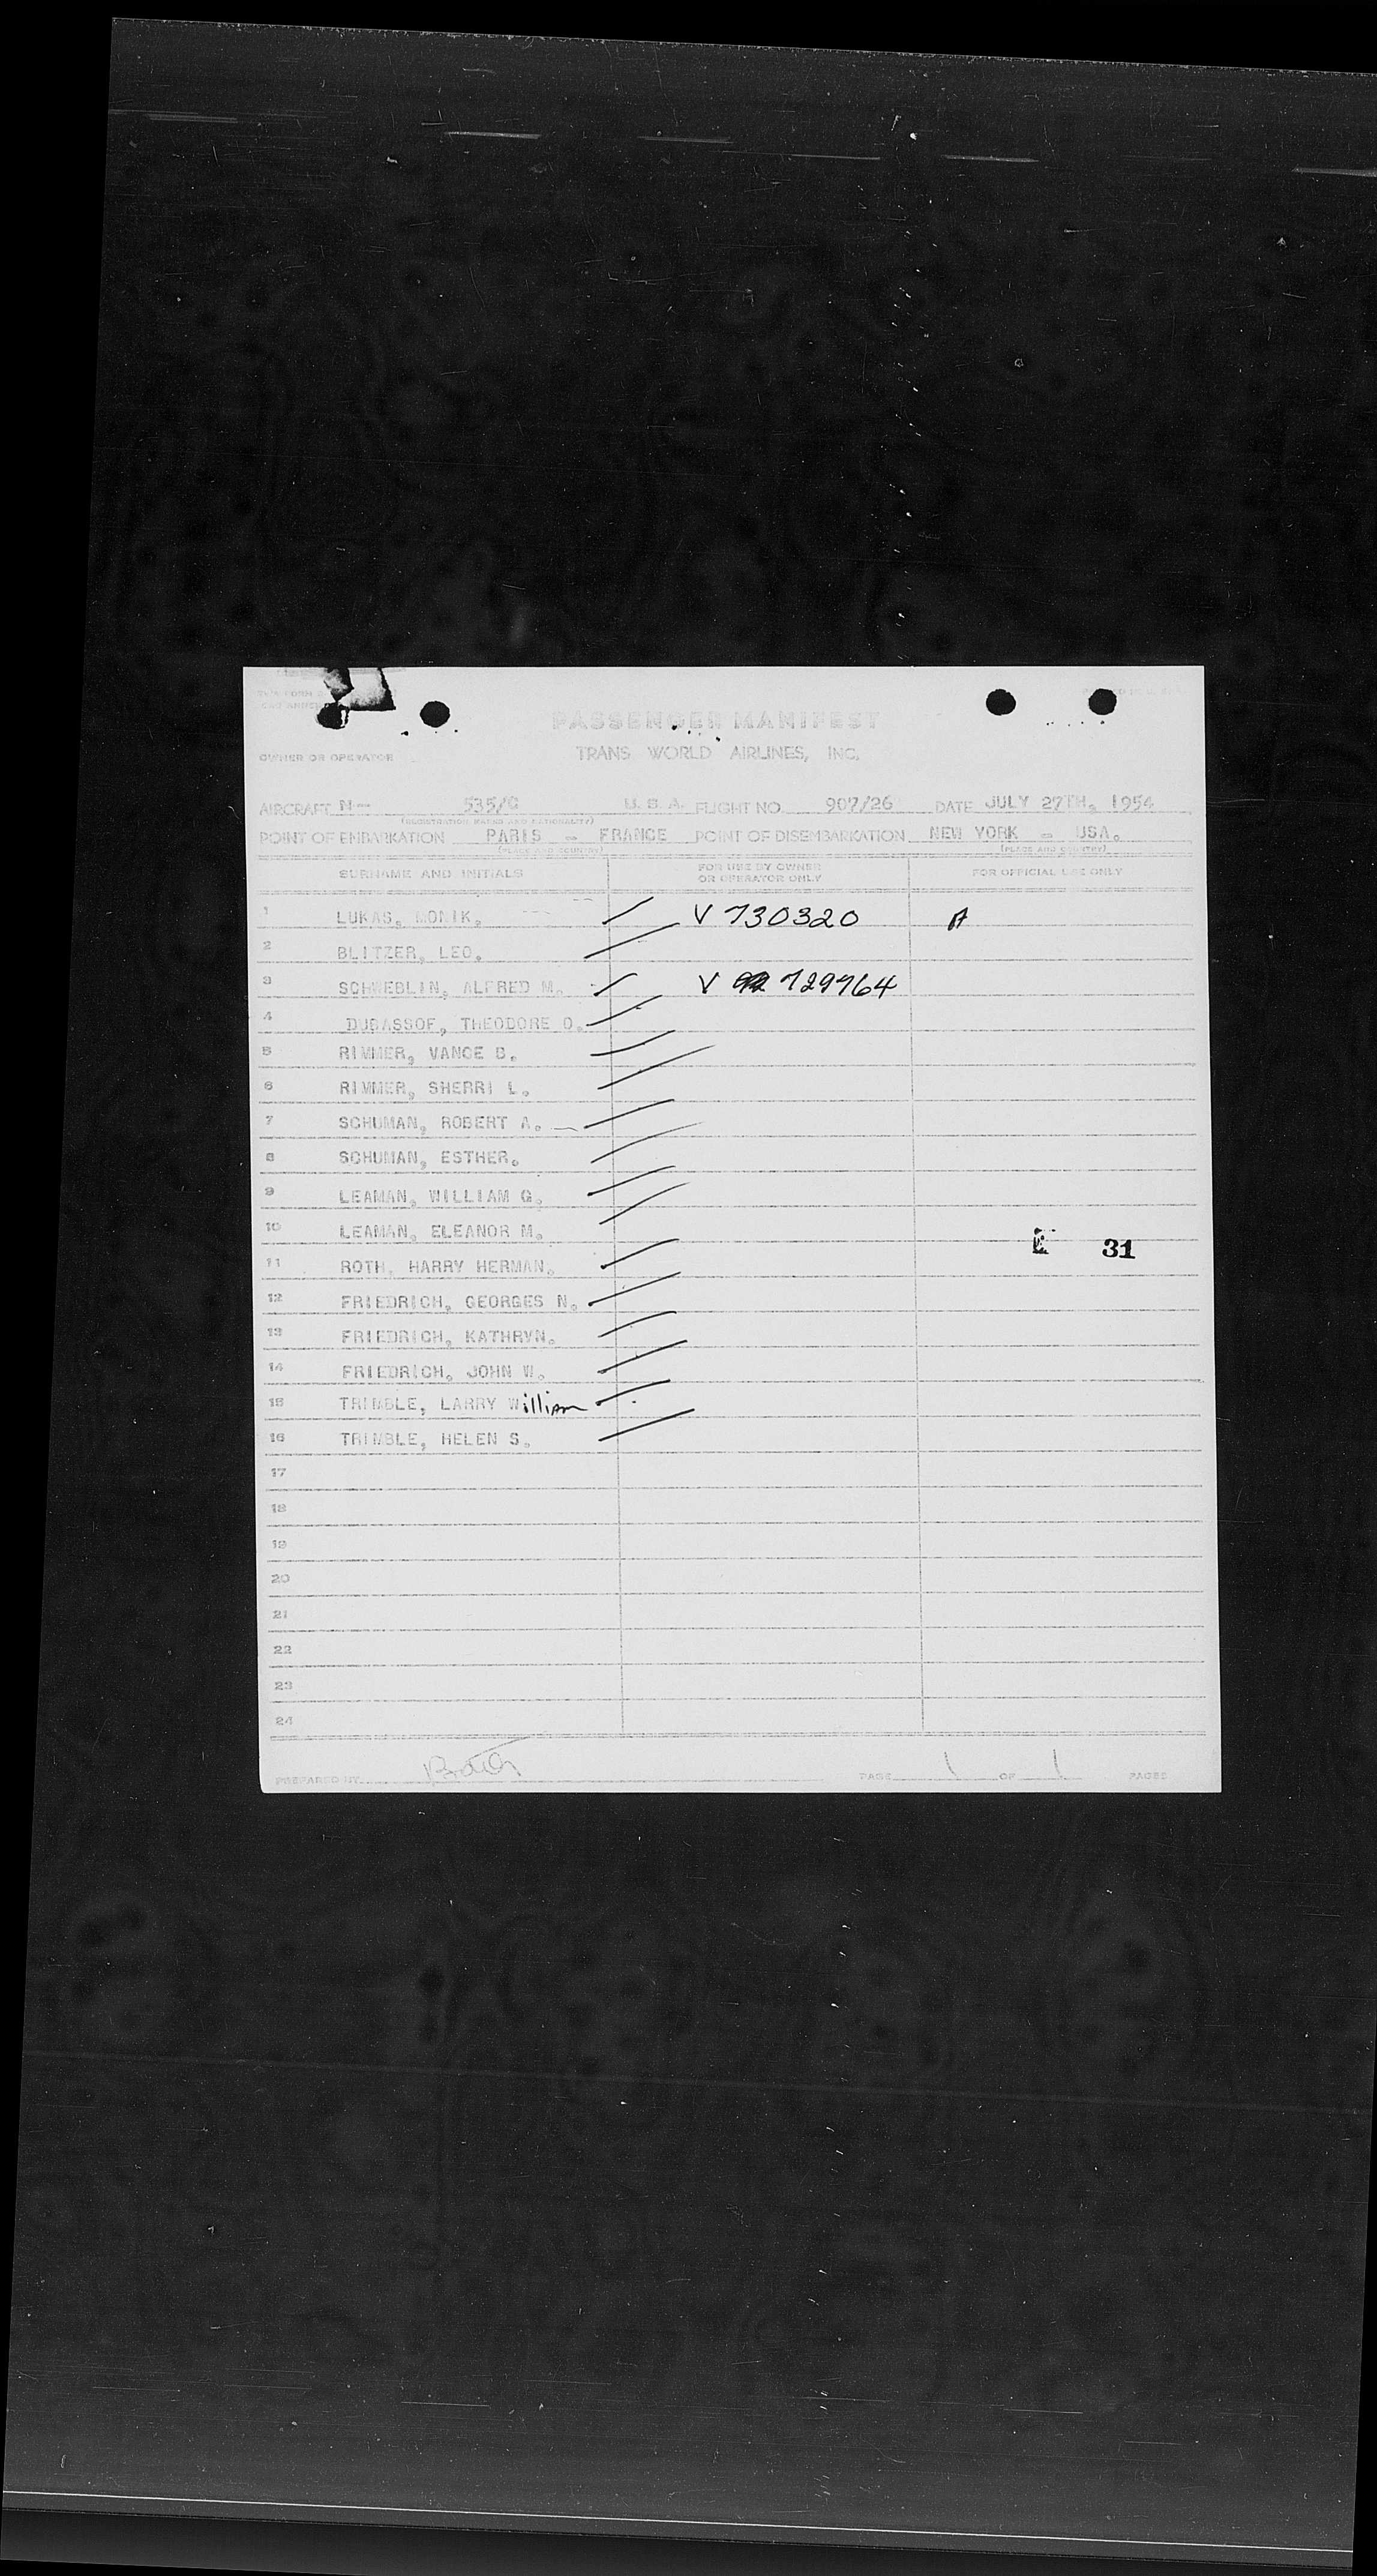 PASSENGER MANIFEST
OWNER OR OPERATOR TRANS WORLD AIRLINES, INC.
AIRCRAFT N-- 535/C U. S. A. FLIGHT NO. 907/26 DATE JULY 27TH, 1954
(REGISTRATION MARKS AND NATIONALITY)
POINT OF EMBARKATION PARIS - FRANCE POINT OF DISEMBARKATION NEW YORK - USA.
(PLACE AND COUNTRY) (PLACE AND COUNTRY)
SURNAME AND INITIALS FOR USE BY OWNER OR OPERATOR ONLY FOR OFFICIAL USE ONLY
1 LUKAS, MONIK. V 730320 A
2 BLITZER, LEO.
3 SCHWEBLIN, ALFRED M. V 729764
4 DUBASSOF, THEODORE O.
5 RIMMER, VANCE B.
6 RIMMER, SHERRI L.
7 SCHUMAN, ROBERT A.
8 SCHUMAN, ESTHER.
9 LEAMAN, WILLIAM G.
10 LEAMAN, ELEANOR M.
31
11 ROTH, HARRY HERMAN.
12 FRIEDRICH, GEORGES N.
13 FRIEDRICH, KATHRYN.
14 FRIEDRICH, JOHN W.
15 TRIMBLE, LARRY William
16 TRIMBLE, HELEN S.
17
18
19
20
21
22
23
24
PREPARED BY PAGE 1 OF 1 PAGES